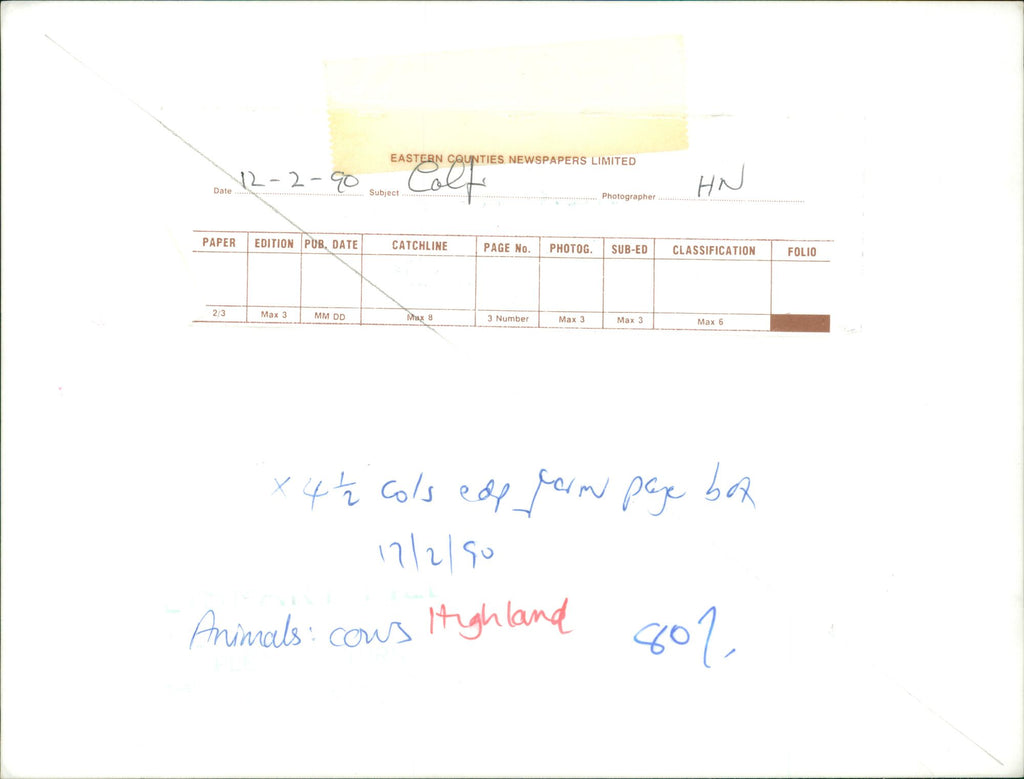 EASTERN COUNTIES NEWSPAPERS LIMITED
Date 12-2-90 Subject Calf. Photographer HN
PAPER EDITION PUB. DATE CATCHLINE PAGE No. PHOTOG. SUB-ED CLASSIFICATION FOLIO
2/3 Max 3 MM DD Max 8 3 Number Max 3 Max 3 Max 6
x 4 1/2 cols edp farm page box
17/2/90
Animals: cows Highland 80%